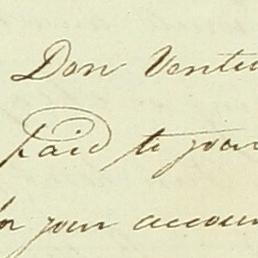 Don Ventu
Paid to your
for your accoun